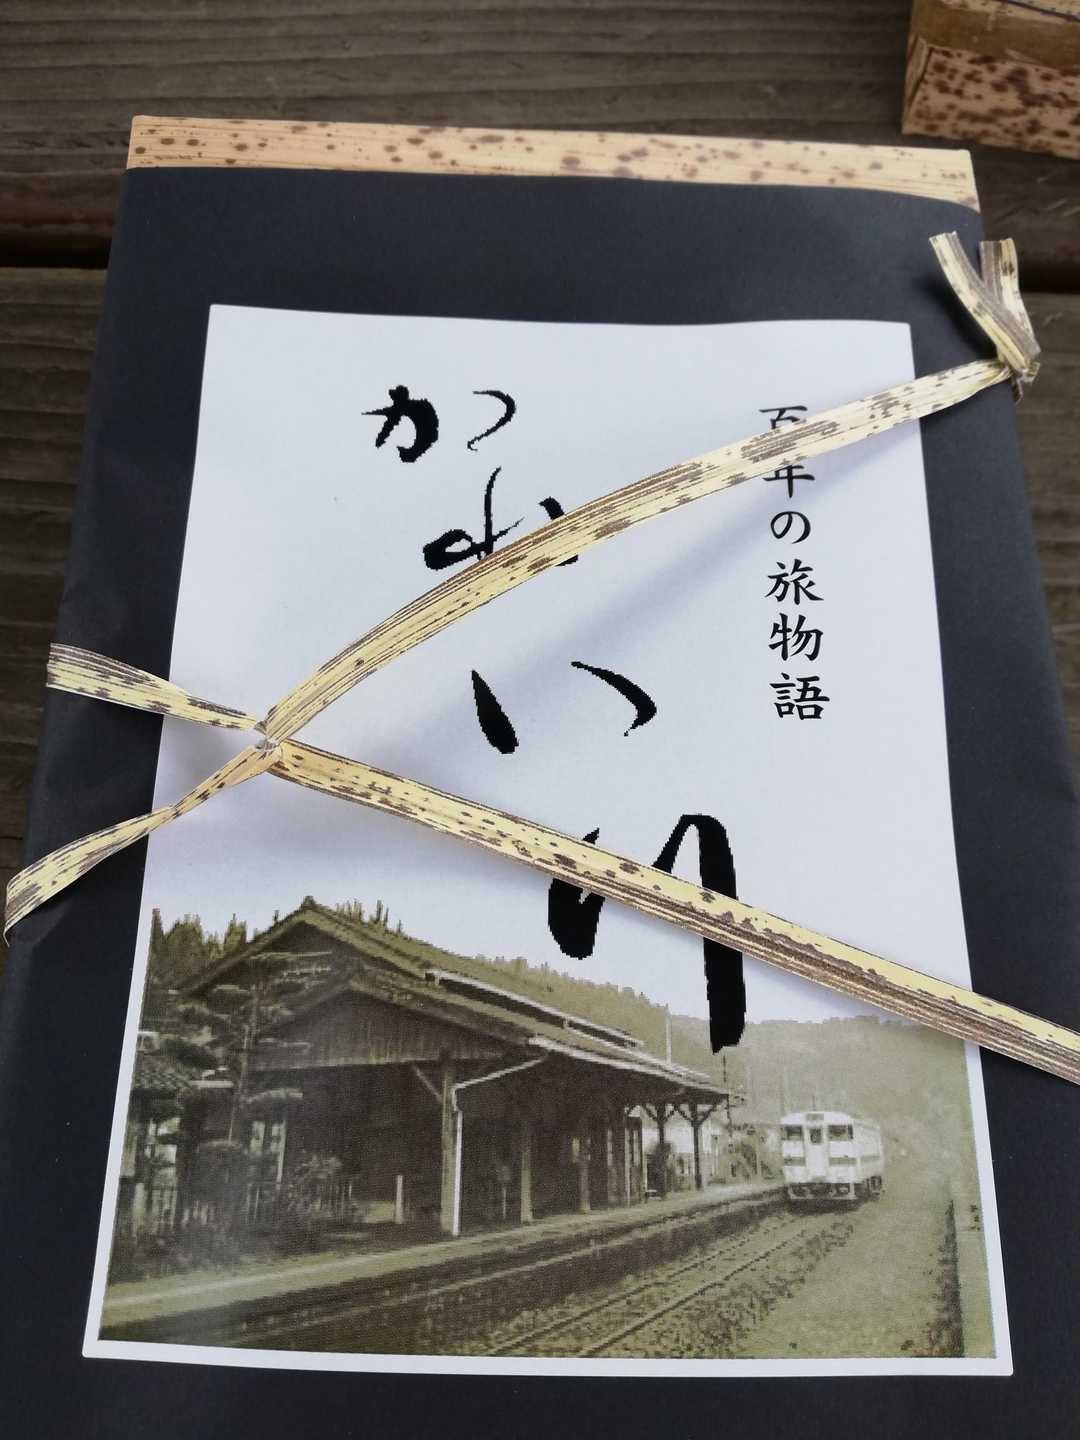 百年の旅物語
かれい川